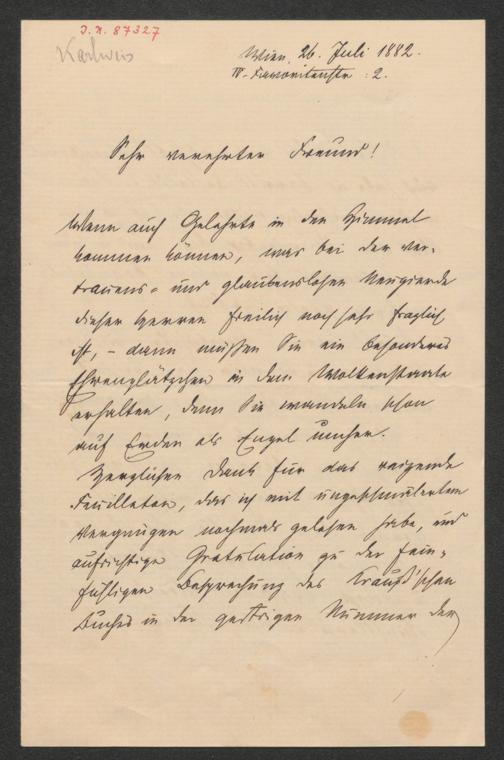 J.N. 87327
Karlweis
Wien, 26. Juli 1882.
IV. Favoritenstr. 2.
Sehr verehrter Freund!
Wenn auch Gelehrte in den Himmel
kommen können, was bei der ver-
trauens- und glaubenslosen Neugierde
dieser Herren freilich noch sehr fraglich
ist, – dann müssen Sie ein besonderes
Ehrenplätzchen in dem Wolkenstaate
erhalten, denn Sie wandeln schon
auf Erden als Engel umher.
Herzlichen Dank für das reizende
Feuilleton, das ich mit ungeschmälertem
Vergnügen nochmals gelesen habe, und
aufrichtige Gratulation zu der fein-
fühligen Besprechung des Krauß'schen
Buches in der gestrigen Nummer der